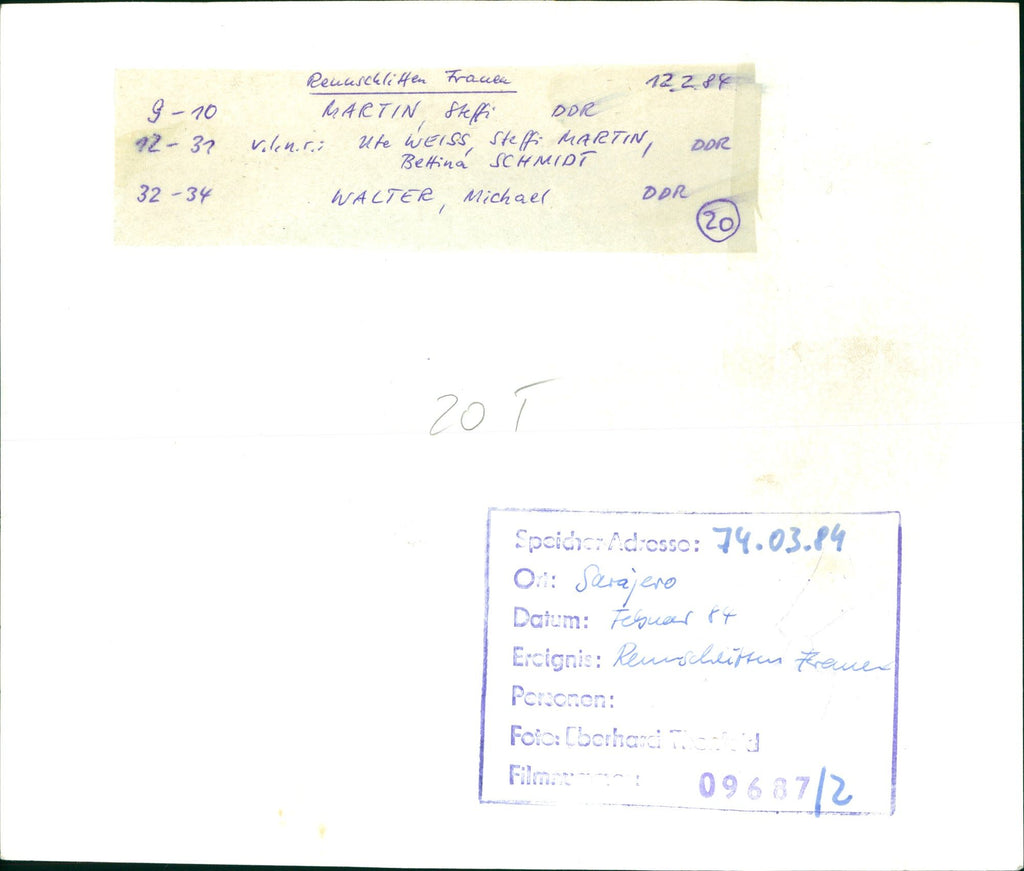 Rennschlitten Frauen 12.2.84
9-10 MARTIN, Steffi DDR
12-31 v.l.n.r.: Ute WEISS, Steffi MARTIN, DDR
Bettina SCHMIDT
32-34 WALTER, Michael DDR
20
20 T
Speicher-Adresse: 74.03.84
Ort: Sarajevo
Datum: Februar 84
Ereignis: Rennschlitten Frauen
Personen:
Foto: Eberhard
Filmnummer: 09687/2